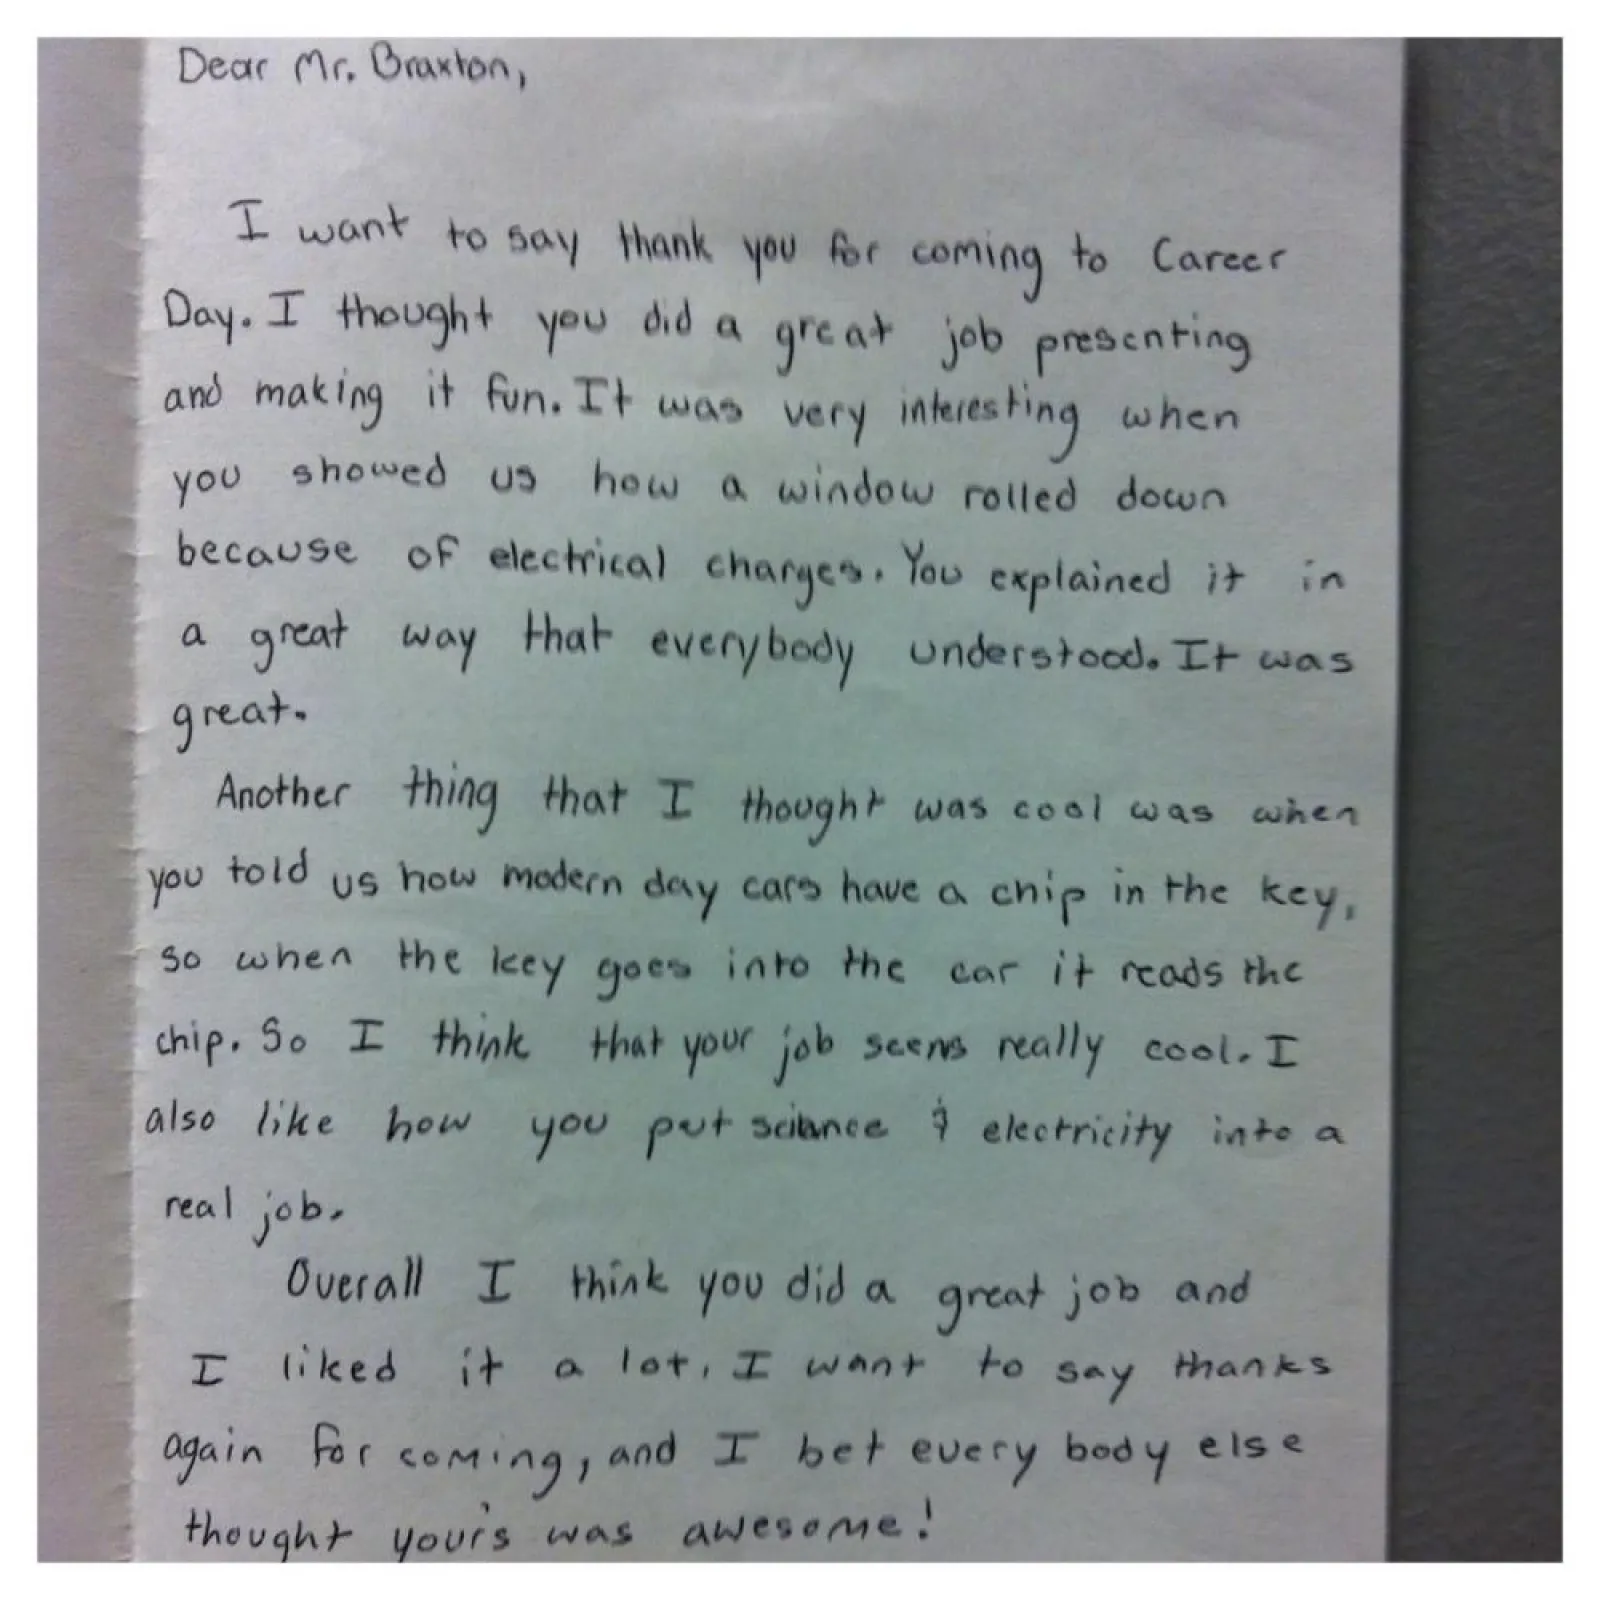 Dear Mr. Braxton,
I want to say thank you for coming to Career
Day. I thought you did a great job presenting
and making it fun. It was very interesting when
you showed us how a window rolled down
because of electrical charges. You explained it in
a great way that everybody understood. It was
great.
Another thing that I thought was cool was when
you told us how modern day cars have a chip in the key,
so when the key goes into the car it reads the
chip. So I think that your job seems really cool. I
also like how you put science & electricity into a
real job.
Overall I think you did a great job and
I liked it a lot. I want to say thanks
again for coming, and I bet every body else
thought your's was awesome!